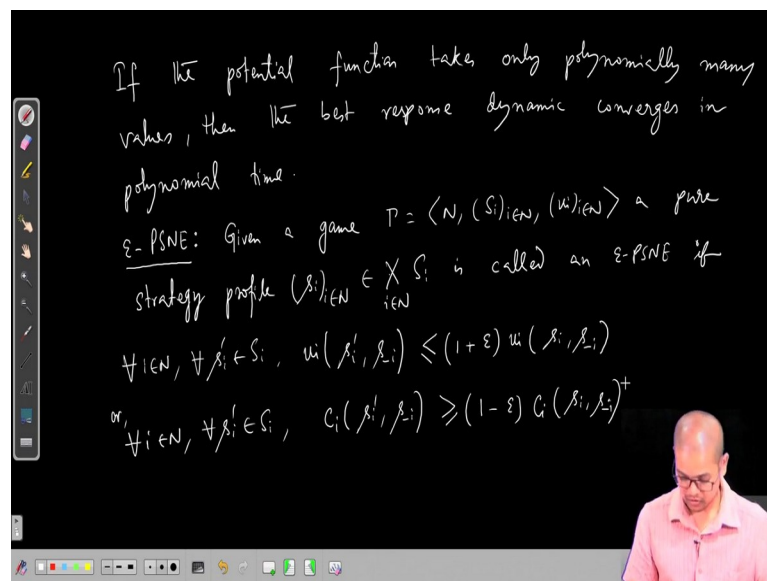 If the potential function takes only polynomially many
values, then the best response dynamic converges in
polynomial time.
ε-PSNE: Given a game Γ = ⟨N, (Si)i∈N, (ui)i∈N⟩ a pure
strategy profile (si)i∈N ∈ X i∈N Si is called an ε-PSNE if
∀ i∈N, ∀ si' ∈ Si, ui(si', s-i) ≤ (1+ε) ui(si, s-i)
or, ∀ i ∈N, ∀ si' ∈ Si, Ci(si', s-i) ≥ (1-ε) Ci(si, s-i)